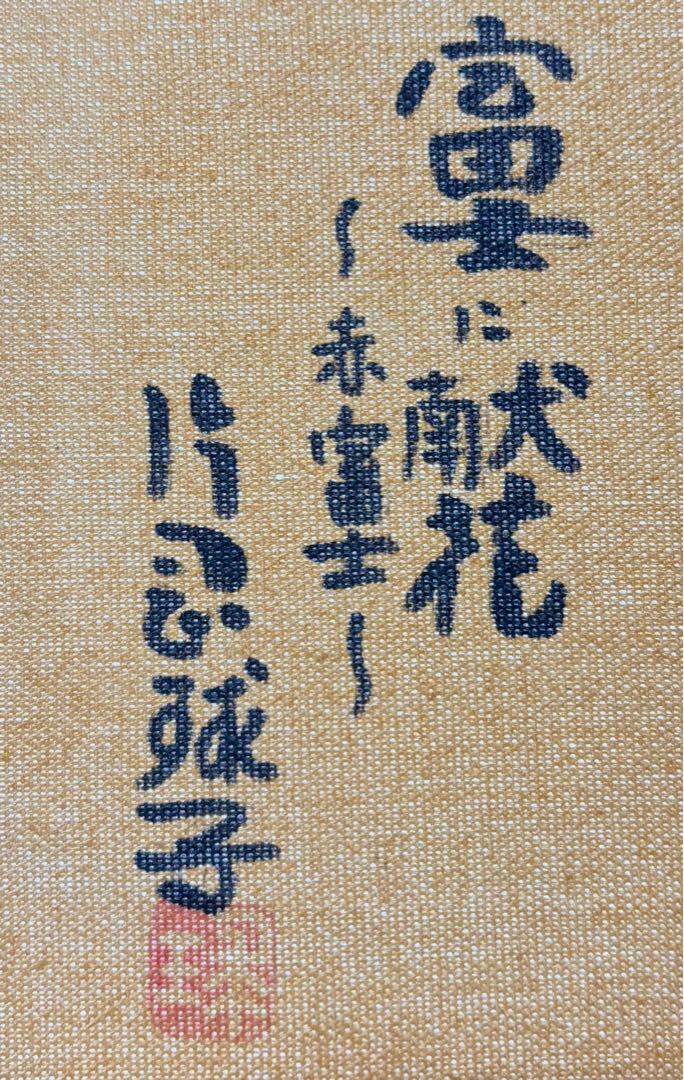 富士に献花
〜赤富士〜
片岡球子